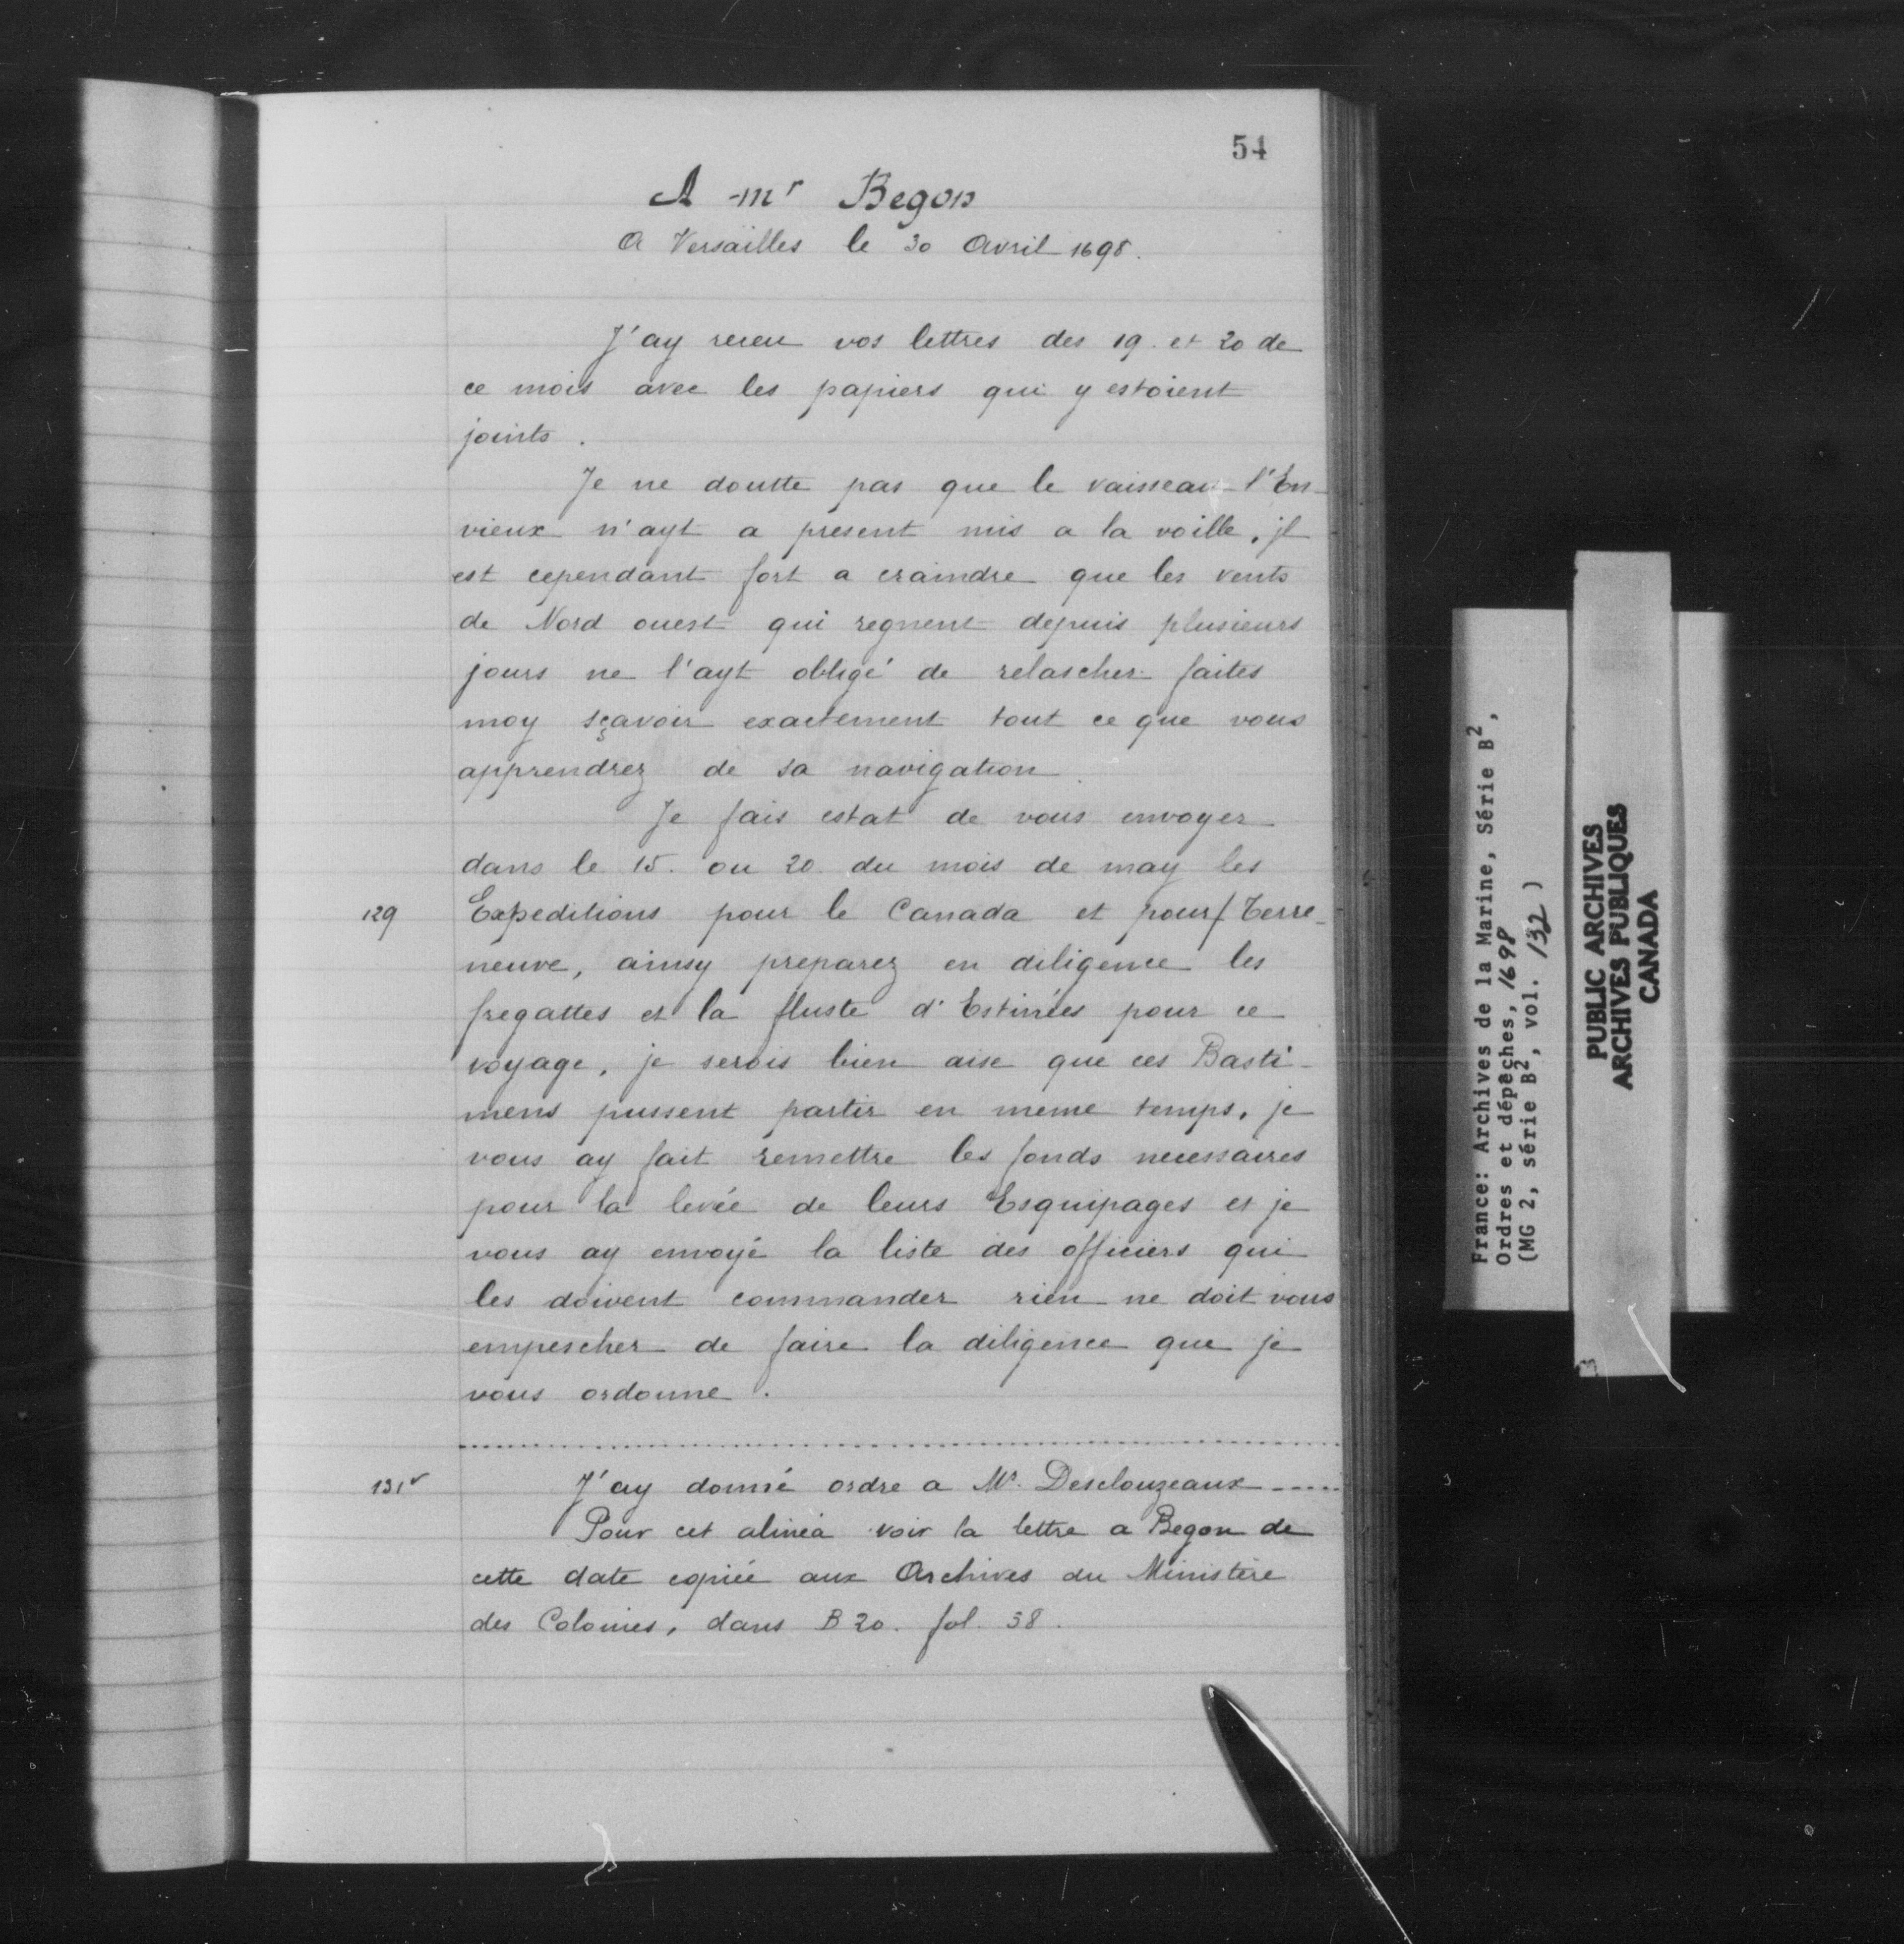 54
A mr Begon
A Versailles le 30 Avril 1698.
J'ay receu vos lettres des 19. et 20 de
ce mois avec les papiers qui y estoient
joints.
Je ne doutte pas que le vaisseau l'En-
vieux n'ayt a present mis a la voille, jl
est cependant fort a craindre que les vents
de Nord ouest qui regnent depuis plusieurs
jours ne l'ayt obligé de relascher faites
moy sçavoir exactement tout ce que vous
apprendrez de sa navigation.
Je fais estat de vous envoyer
dans le 15. ou 20. du mois de may les
129 Expeditions pour le Canada et pour/ Terre-
neuve, ainsy preparez en diligence les
fregattes et la fluste d'Estinées pour ce
voyage, je serois bien aise que ces Basti-
mens pussent partir en meme temps, je
vous ay fait remettre les fonds necessaires
pour la levée de leurs Esquipages et je
vous ay envoyé la liste des officiers qui
les doivent commander rien ne doit vous
empescher de faire la diligence que je
vous ordonne.
131v J'ay donné ordre a Mr. Desclouzeaux.....
Pour cet alinéa voir la lettre a Begon de
cette date copiée aux Archives du Ministère
des Colonies, dans B 20. fol. 58.
France: Archives de la Marine, Série B2,
Ordres et dépêches, 1698
(MG 2, série B2, vol. 132)
PUBLIC ARCHIVES
ARCHIVES PUBLIQUES
CANADA
3